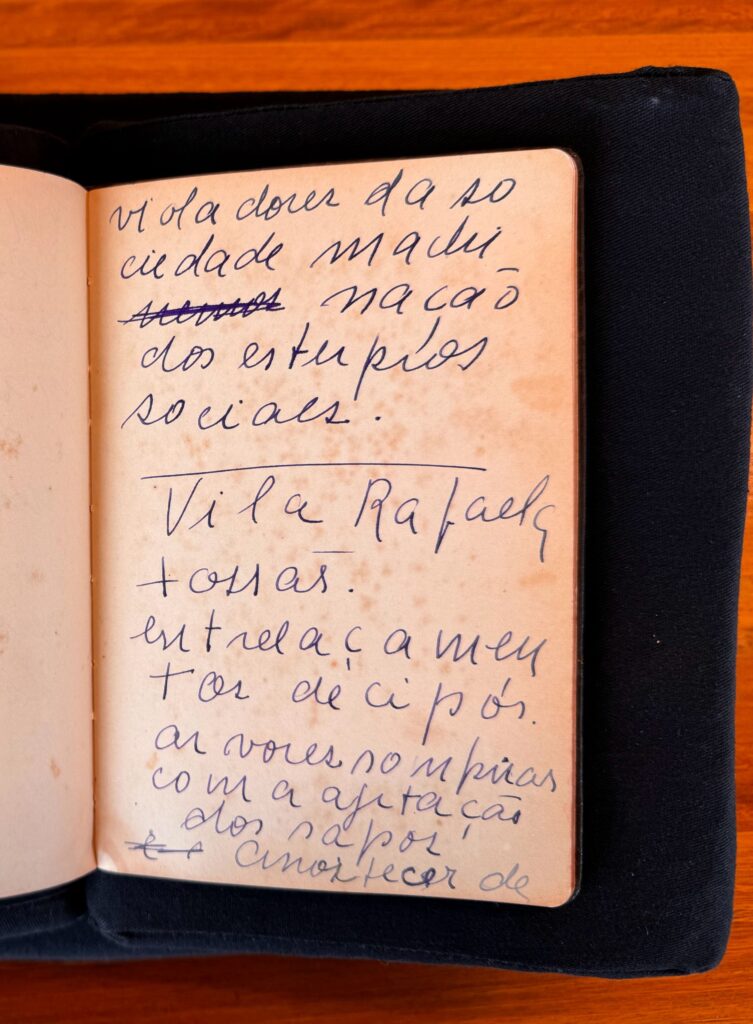 violadores da so
ciedade machi
nação
dos estupros
sociaes.
Vila Rafaela
tossas.
entrelaçamen
tos de cipós.
arvores sombrias
com a agitação
dos sapos!
de